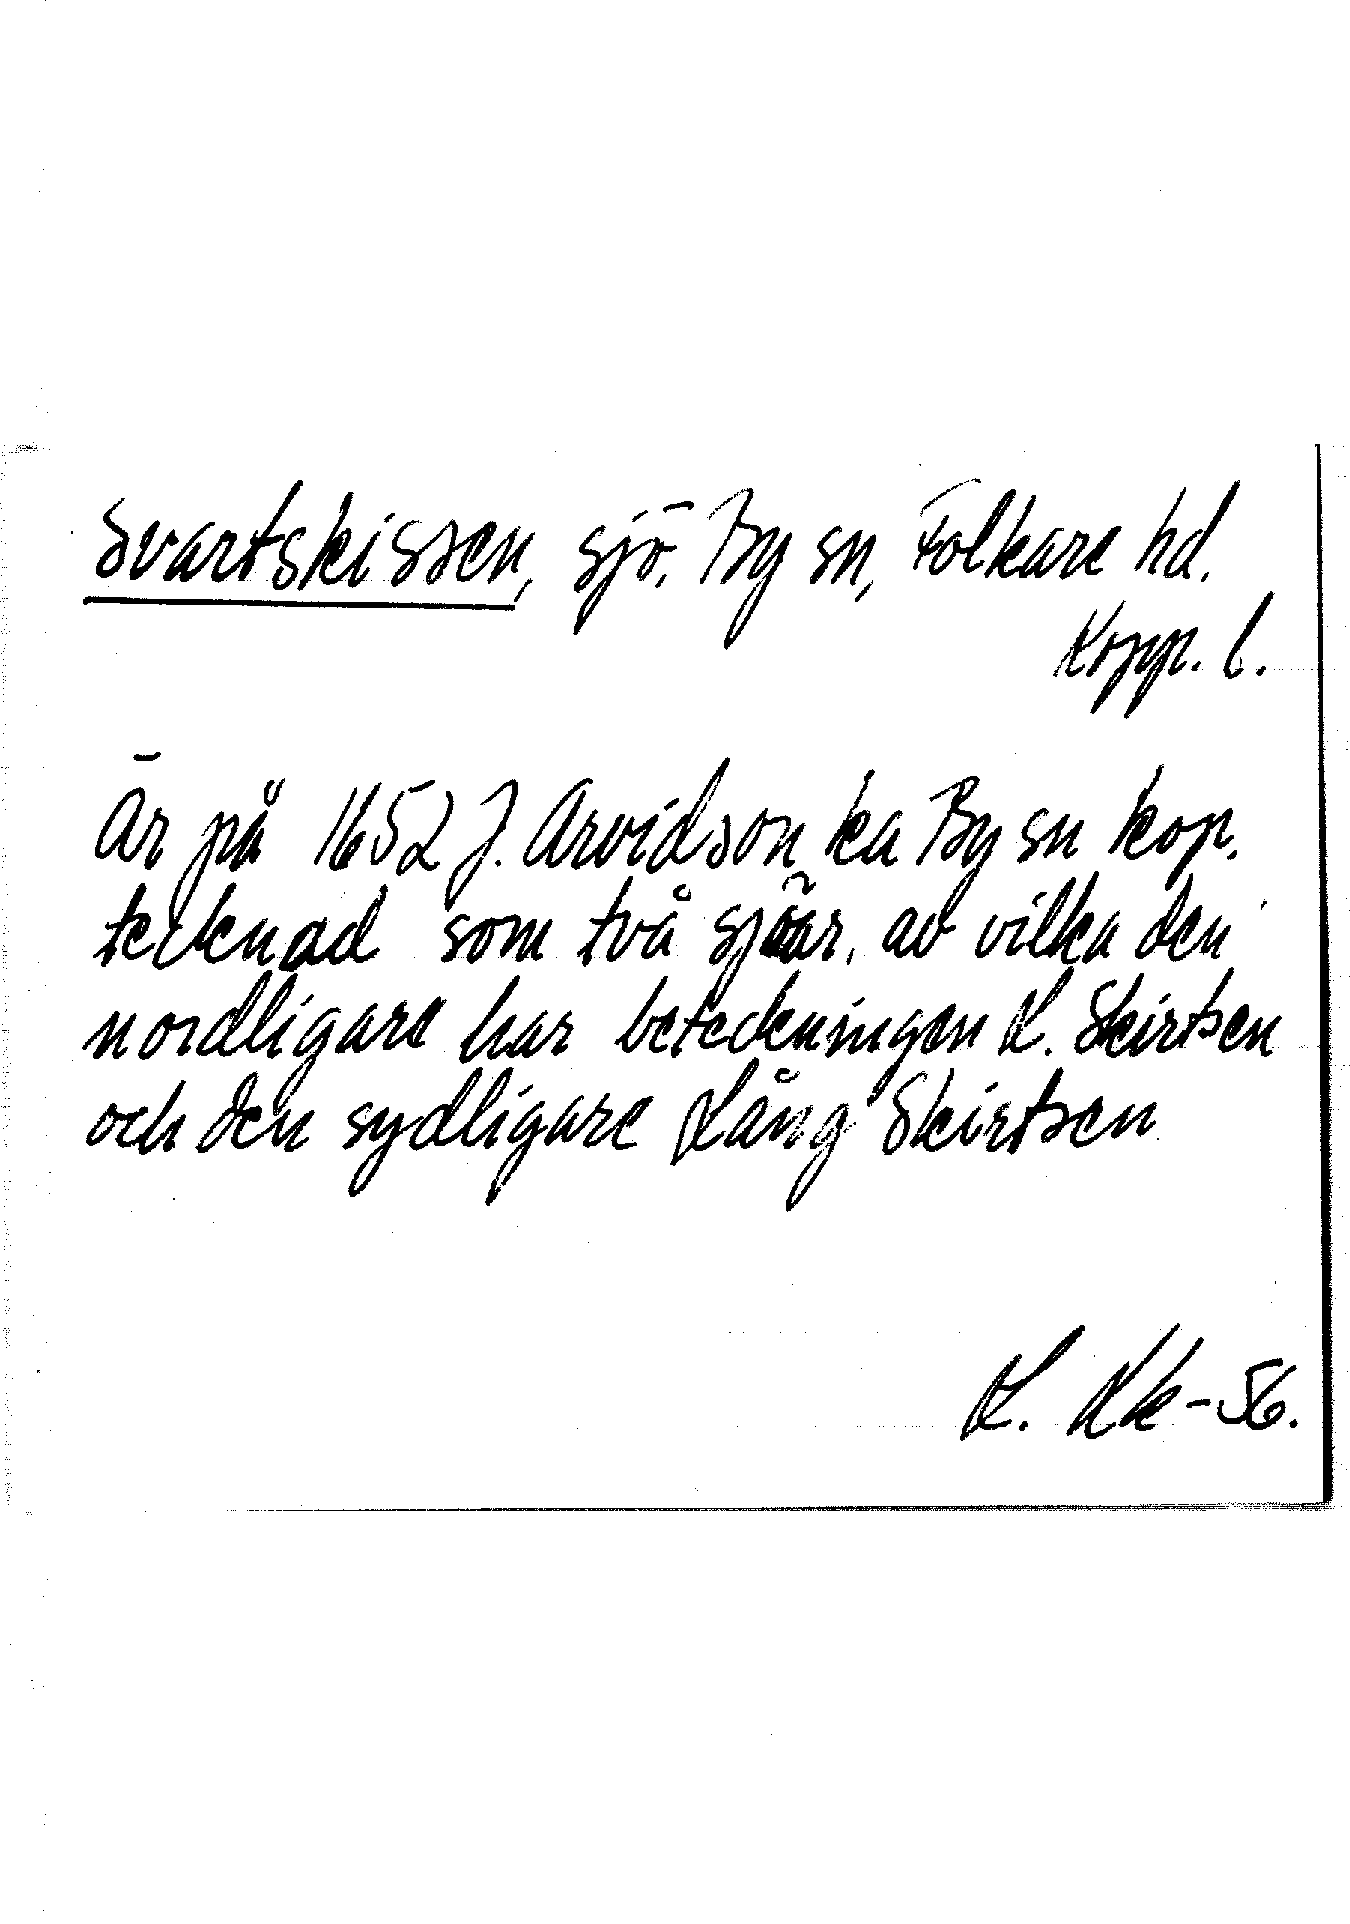 Svartskissen, sjö, By sn, Folkare hd.
Kopp. l.
Är på 1652 J. Arvidson ka By sn kop.
tecknad som två sjöar, av vilka den
nordligare har beteckningen L. Skirtsen
och den sydligare Lång Skirtsen
L. Lk-56.